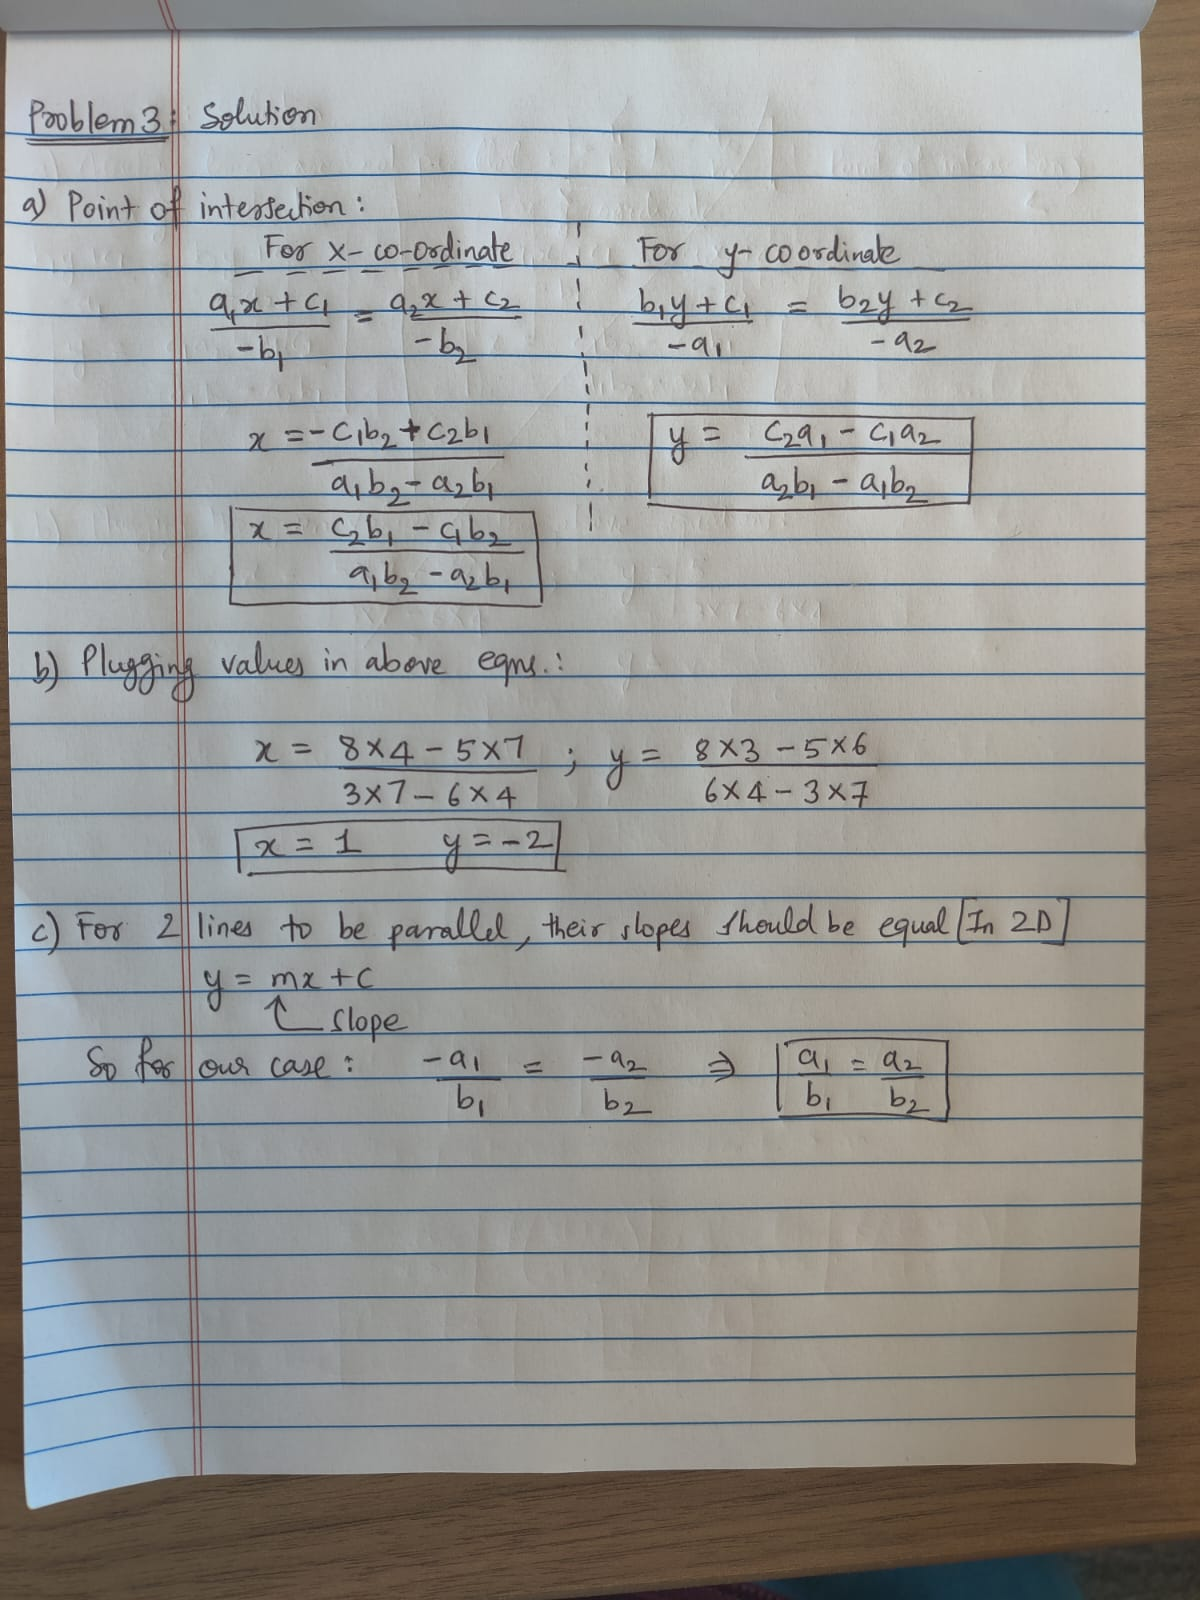 Problem 3: Solution
a) Point of intersection:
For x-co-ordinate
a₁x + c₁ / -b₁ = a₂x + c₂ / -b₂
x = -c₁b₂ + c₂b₁ / a₁b₂ - a₂b₁
x = c₂b₁ - c₁b₂ / a₁b₂ - a₂b₁
For y-coordinate
b₁y + c₁ / -a₁ = b₂y + c₂ / -a₂
y = c₂a₁ - c₁a₂ / a₂b₁ - a₁b₂
b) Plugging values in above eqns.:
x = 8×4 - 5×7 / 3×7 - 6×4 ; y = 8×3 - 5×6 / 6×4 - 3×7
x = 1 y = -2
c) For 2 lines to be parallel, their slopes should be equal [In 2D]
y = mx + c
↑ slope
So for our case: -a₁ / b₁ = -a₂ / b₂ ⇒ a₁ / b₁ = a₂ / b₂